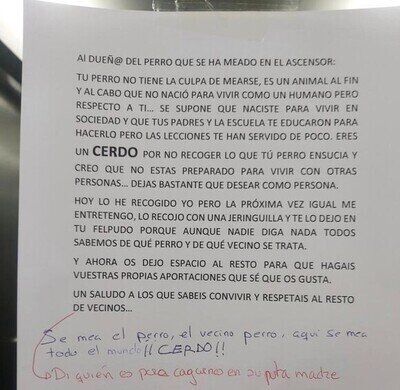 Al DUEÑ@ DEL PERRO QUE SE HA MEADO EN EL ASCENSOR:
TU PERRO NO TIENE LA CULPA DE MEARSE, ES UN ANIMAL AL FIN
Y AL CABO QUE NO NACIÓ PARA VIVIR COMO UN HUMANO PERO
RESPECTO A TI... SE SUPONE QUE NACISTE PARA VIVIR EN
SOCIEDAD Y QUE TUS PADRES Y LA ESCUELA TE EDUCARON PARA
HACERLO PERO LAS LECCIONES TE HAN SERVIDO DE POCO. ERES
UN CERDO POR NO RECOGER LO QUE TÚ PERRO ENSUCIA Y
CREO QUE NO ESTAS PREPARADO PARA VIVIR CON OTRAS
PERSONAS... DEJAS BASTANTE QUE DESEAR COMO PERSONA.
HOY LO HE RECOGIDO YO PERO LA PRÓXIMA VEZ IGUAL ME
ENTRETENGO, LO RECOJO CON UNA JERINGUILLA Y TE LO DEJO EN
TU FELPUDO PORQUE AUNQUE NADIE DIGA NADA TODOS
SABEMOS DE QUÉ PERRO Y DE QUÉ VECINO SE TRATA.
Y AHORA OS DEJO ESPACIO AL RESTO PARA QUE HAGAIS
VUESTRAS PROPIAS APORTACIONES QUE SÉ QUE OS GUSTA.
UN SALUDO A LOS QUE SABEIS CONVIVIR Y RESPETAIS AL RESTO
DE VECINOS...
Se mea el perro, el vecino perro, aquí se mea
todo el mundo!! ¡CERDO!!
Di quién es para cagarnos en su puta madre